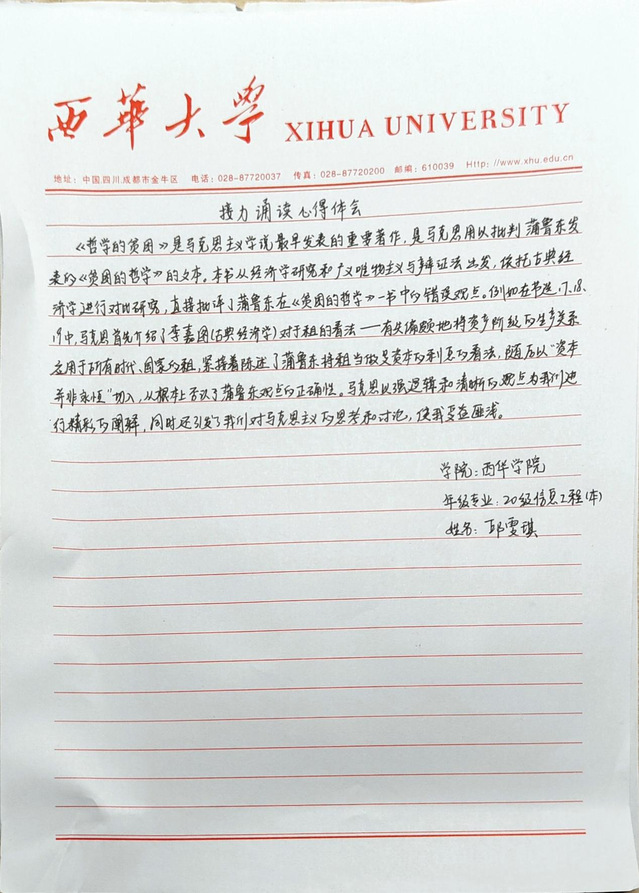 西華大學 XIHUA UNIVERSITY
地址：中国.四川.成都市金牛区 电话：028-87720037 传真：028-87720200 邮编：610039 Http://www.xhu.edu.cn
接力诵读心得体会
《哲学的贫困》是马克思主义学说最早发表的重要著作，是马克思用以批判蒲鲁东发
表的《贫困的哲学》的文本。本书从经济学研究和广义唯物主义与辩证法出发，依托古典经
济学进行对比研究，直接批评了蒲鲁东在《贫困的哲学》一书中的错误观点。例如在书选，17、18、
19中，马克思首先介绍了李嘉图(古典经济学)对于租的看法——有失偏颇地将资产阶级的生产关系
应用于所有时代、国家的租，紧接着陈述了蒲鲁东将租当做是资本的利息的看法，随后以“资本
并非永恒”切入，从根本上否认了蒲鲁东观点的正确性。马克思以强逻辑和清晰的观点为我们进
行精彩的阐释，同时还引发了我们对马克思主义的思考和讨论，使我受益匪浅。
学院：西华学院
年级专业：20级信息工程(本)
姓名：邱雯琪